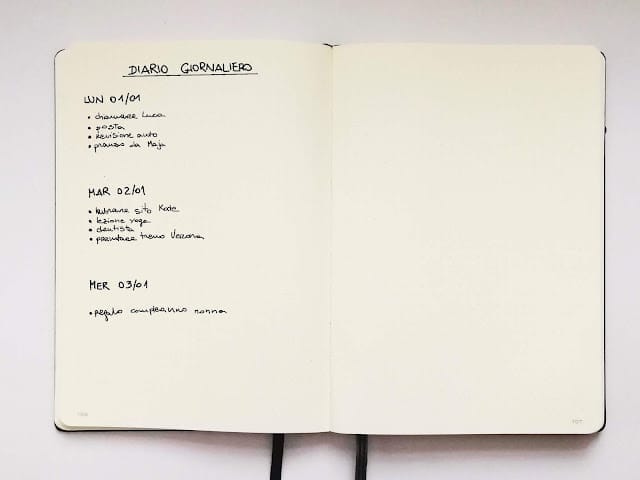 DIARIO GIORNALIERO
LUN 01/01
• chiamare Luca
• posta
• revisione auto
• pranzo da Maja
MAR 02/01
• sito Kate
• lezione yoga
• dentista
• prenotare treno Verona
MER 03/01
• regalo compleanno nonna
107